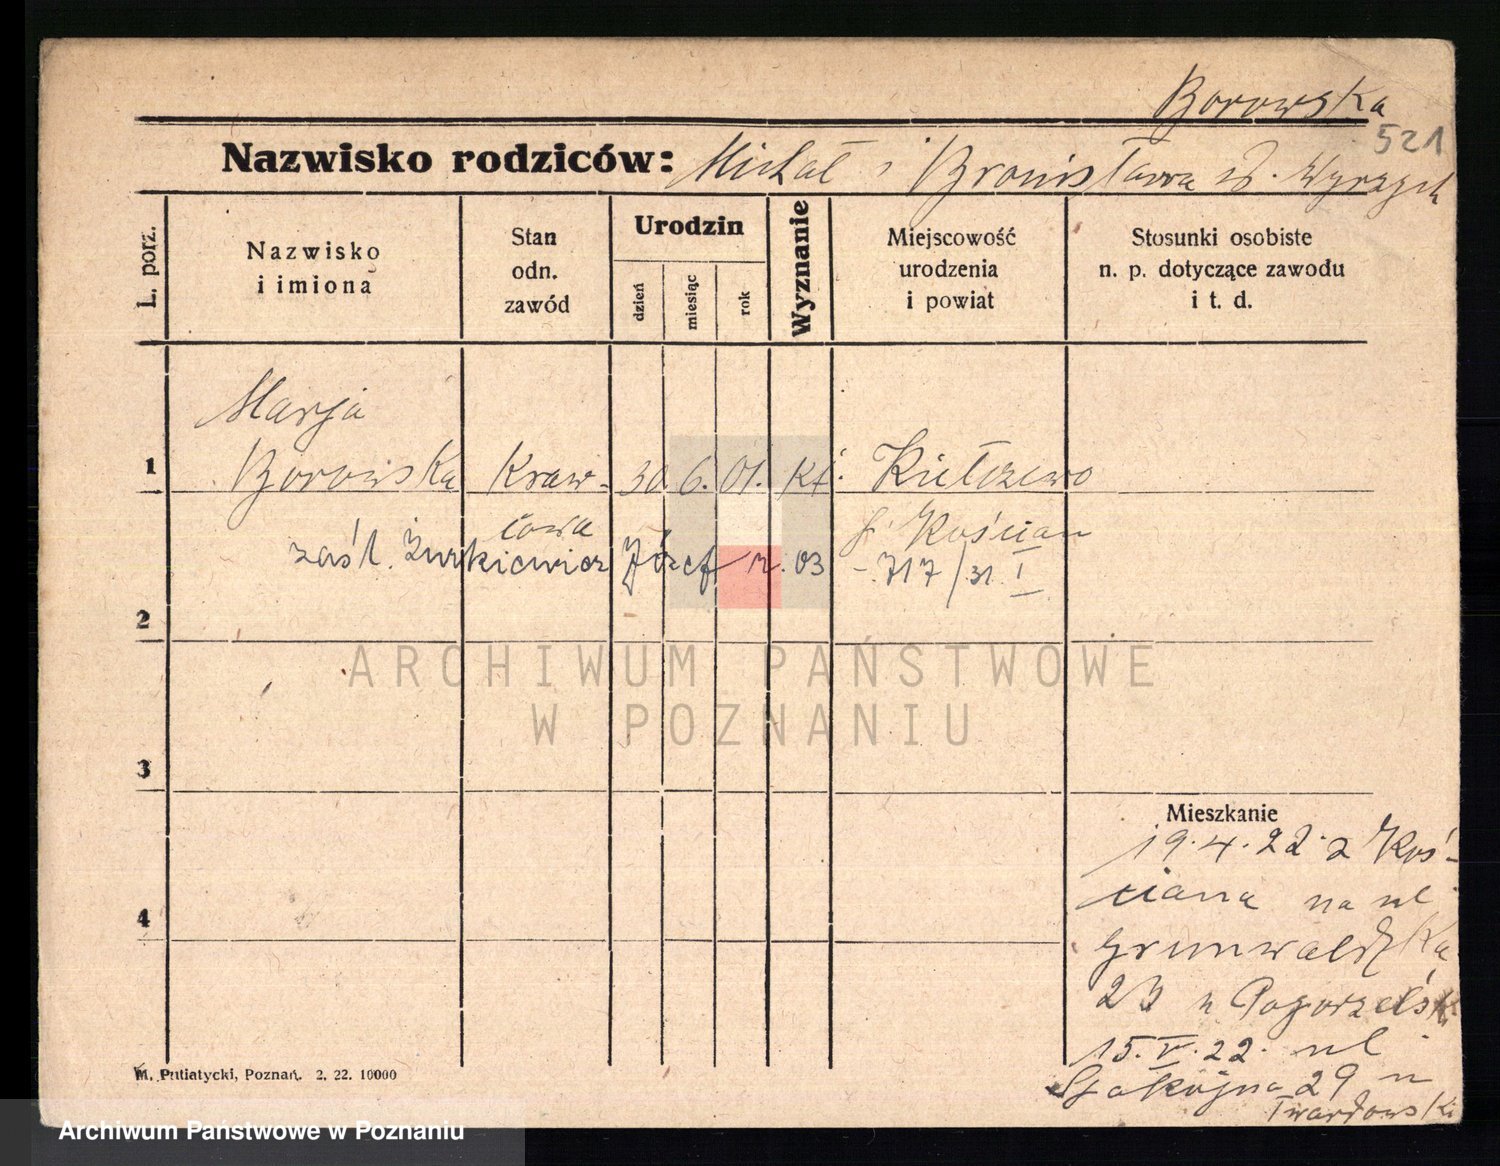 Borowska
521
Nazwisko rodziców: Michał i Bronisława
L. porz.
Nazwisko
i imiona
Stan
odn.
zawód
Urodzin
dzień
miesiąc
rok
Wyznanie
Miejscowość
urodzenia
i powiat
Stosunki osobiste
n. p. dotyczące zawodu
i t. d.
Marja
1 Borowska Kraw- 30. 6. 01. kt. Kiełczewo
cowa p. Kościan
zaśl. Żurkiewicz Józef r. 03 - 717/31 I
2
ARCHIWUM PAŃSTWOWE
W POZNANIU
3
Mieszkanie
19.4.22 z Koś-
ciana na ul
4
Grunwaldzka
23 u Pogorzelski
15.V.22. ul
Spokojna 29 u
Twardowski
M. Putiatycki, Poznań. 2. 22. 10000
Archiwum Państwowe w Poznaniu